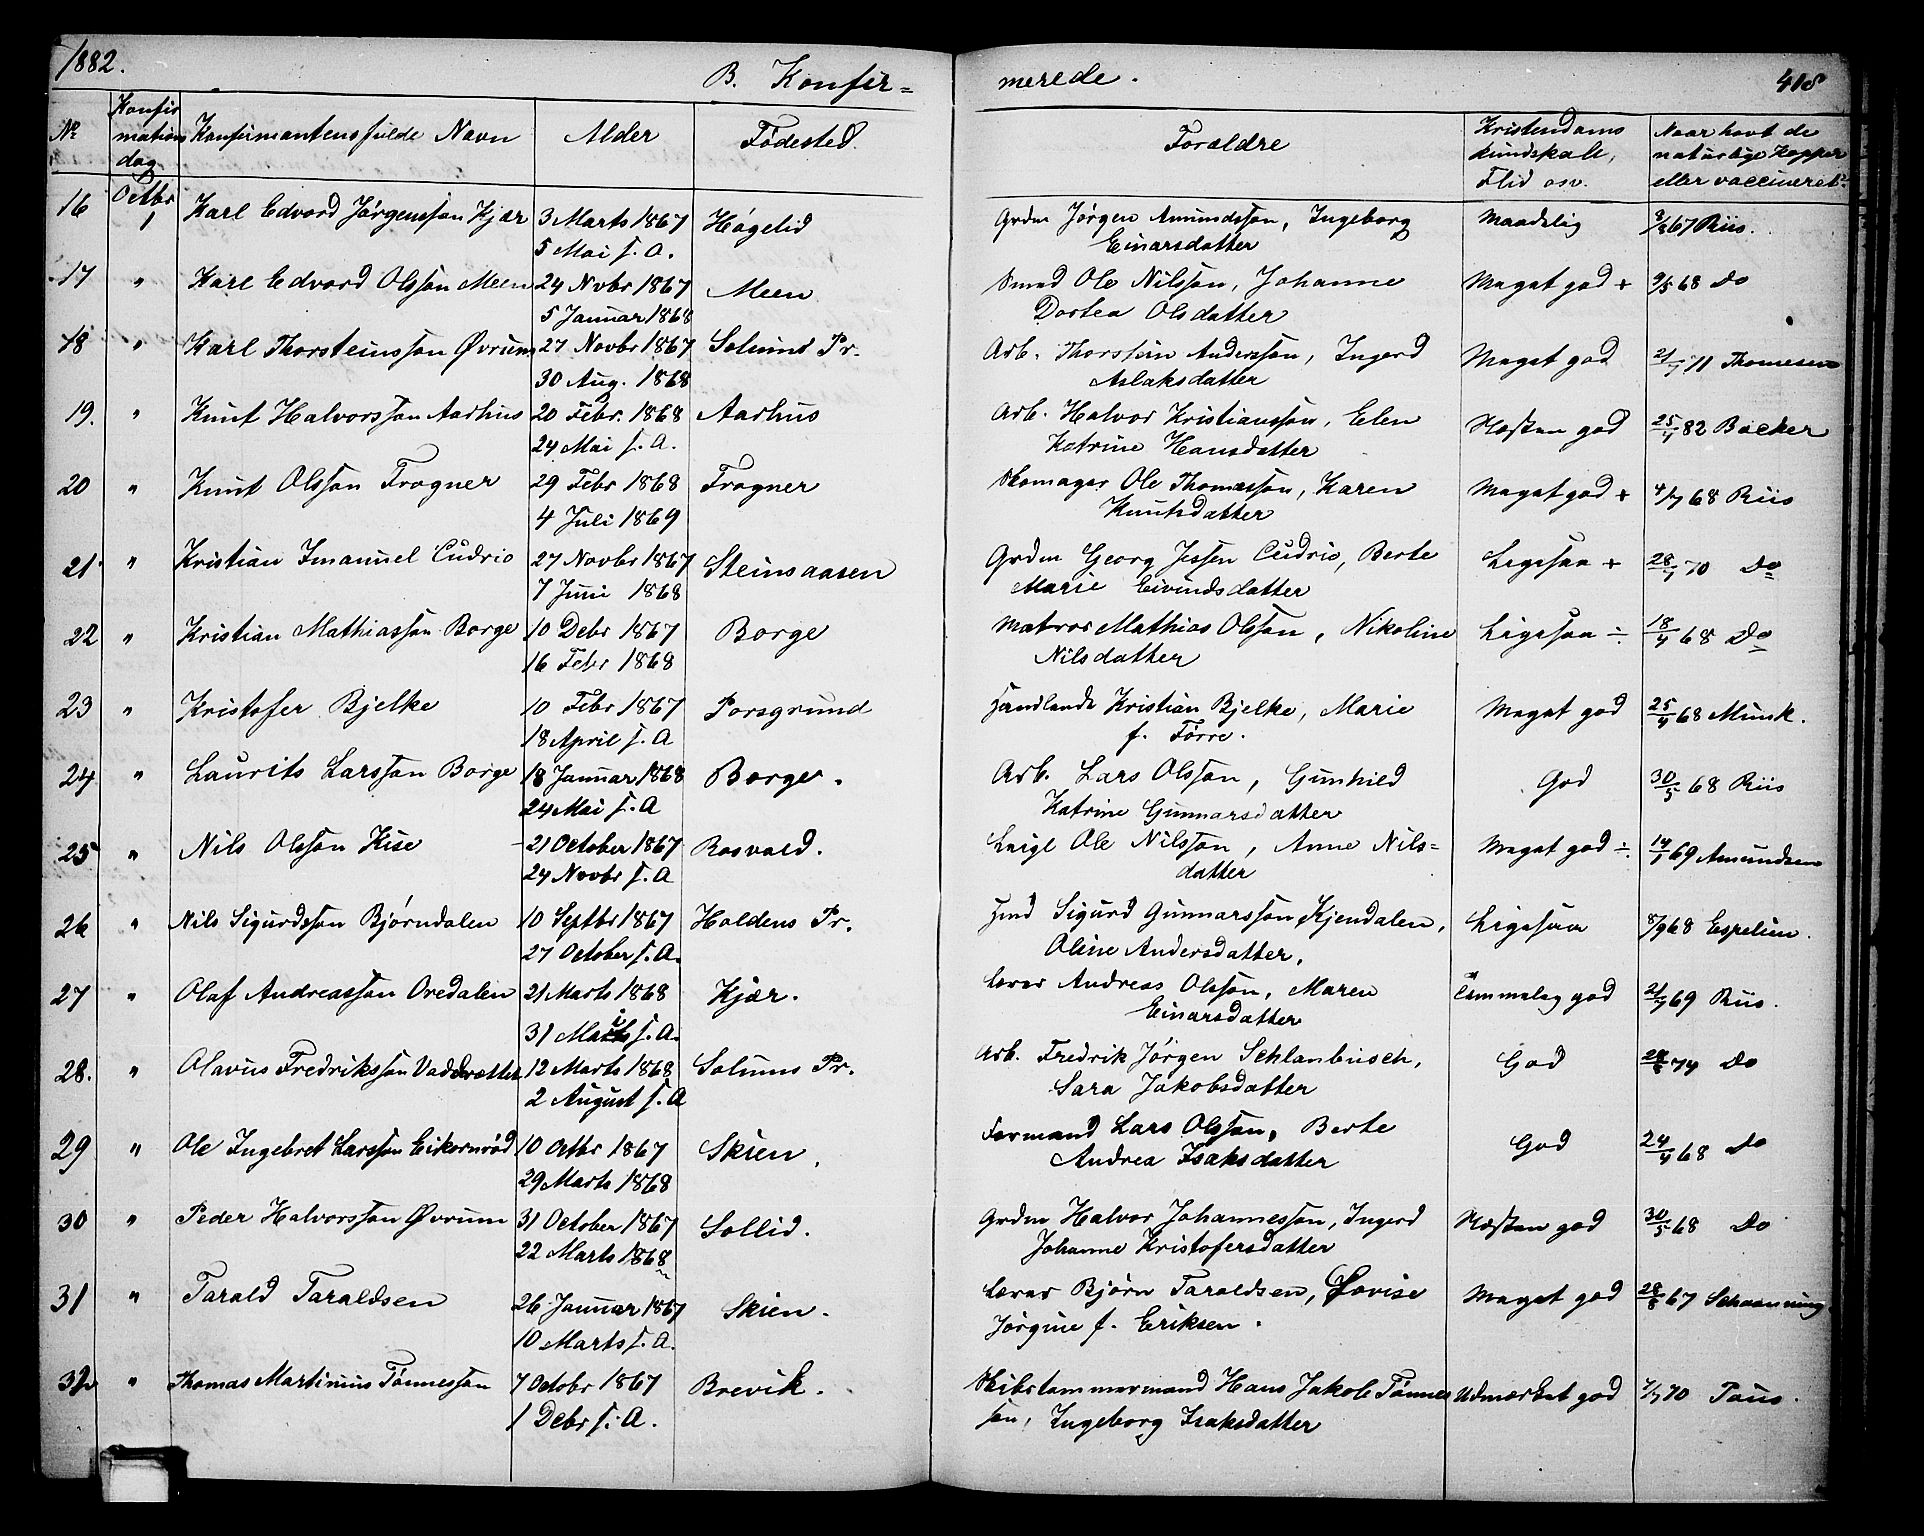 1882.
B. Konfir=
merede.
418
No
Konfir
mations
dag
Konfirmantens fulde Navn
Alder
Fødested.
Forældre
Kristendoms
kundskab,
Flid osv.
Naar havt de
naturlige Kopper
eller vaccineret.
16 Octbr 1 Karl Edvard Jørgensson Kjær 3 Marts 1867 Høgelid Grdm Jørgen Amundsson, Ingeborg Maadelig 8/8 67 Riis.
5 Mai s. A. Einarsdatter
17 " Karl Edvard Olsson Meen 24 Nvbr 1867 Meen Smed Ole Nilsson, Johanne Meget god + 9/5 68 Do
5 Januar 1868 Dortea Olsdatter
18 " Karl Thorsteinsson Øvrum 27 Novbr 1867 Solums Pr. Arb. Thorstein Andersson, Ingerd Meget god 21/7 71 Thomesen
30 Aug. 1868 Aslaksdatter
19. " Knut Halvorsson Aarhus 20 Febr. 1868 Aarhus Arb. Halvor Kristiansson, Elen Næsten god 25/4 82 Backer
24 Mai s. A. Katrine Hansdatter
20 " Knut Olsson Frogner 29 Febr 1868 Frogner Skomager Ole Thomasson, Karen Meget god + 4/7 68 Riis
4 Juli 1869 Knutsdatter
21. " Kristian Imanuel Cudrio 27 Novbr 1867 Steinsaasen Grdm Georg Jessen Cudrio, Berte Ligesaa + 28/7 70 Do
7 Juni 1868 Marie Eivindsdatter
22 " Kristian Mathiasson Borge 10 Debr 1867 Borge Matros Mathias Olsson, Nikoline Ligesaa ÷ 18/4 68 Do
16 Febr 1868 Nilsdatter
23 " Kristofer Bjelke 10 Febr 1867 Porsgrund Handlende Kristian Bjelke, Marie Meget god 25/4 68 Munk.
18 April s. A f. Førre.
24 " Laurits Larsson Borge 18 Januar 1868 Borge. Arb. Lars Olsson, Gunhild God 30/5 68 Riis
24 Mai s. A Katrine Gunnarsdatter
25 " Nils Olsson Kise 21 October 1867 Rosvald. Leigl Ole Nilsson, Anne Nils= Meget god ÷ 14/1 69 Amundsen
24 Novbr s. A datter
26 " Nils Sigurdsson Bjørndalen 10 Septbr 1867 Holdens Pr. Hmd Sigurd Gunnarsson Kjendalen, Ligesaa 8/9 68 Espelin.
27 October s. A. Oline Andersdatter,
27 " Olaf Andreasson Oredalen 21 Marts 1868 Kjær. Lærer Andreas Olsson, Maren Temmelig god 21/7 69 Riis.
31 Mai s. A. Einarsdatter
28. " Olavus Fredriksson Vadderættet 12 Marts 1868 Solums Pr. Arb. Fredrik Jørgen Schlanbusch, God 74 Do
2 August s. A Sara Jakobsdatter
29 " Ole Ingebret Larsson Eikornrød 10 Octbr 1867 Skien. Formand Lars Olsson, Berte God 24/4 68 Do
29 Marts 1868 Andrea Isaksdatter
30 " Peder Halvorsson Øvrum 31 October 1867 Sollid. Grdm Halvor Johannesson, Ingerd Næsten god 30/5 68 Do
22 Marts 1868 Johanne Kristofersdatter
31 " Tarald Taraldsen 26 Januar 1867 Skien. Lærer Bjørn Taraldsen, Lovise Meget god 28/8 67 Schanning
10 Marts s. A. Jørgine f. Eriksen.
32 " Thomas Martinius Tønnesson 7 Octobr 1867 Brevik. Skibstømmermand Hans Jakob Tønnes Udmærket god 7/7 70 Paus.
1 Debr s. A. son, Ingeborg Isaksdatter